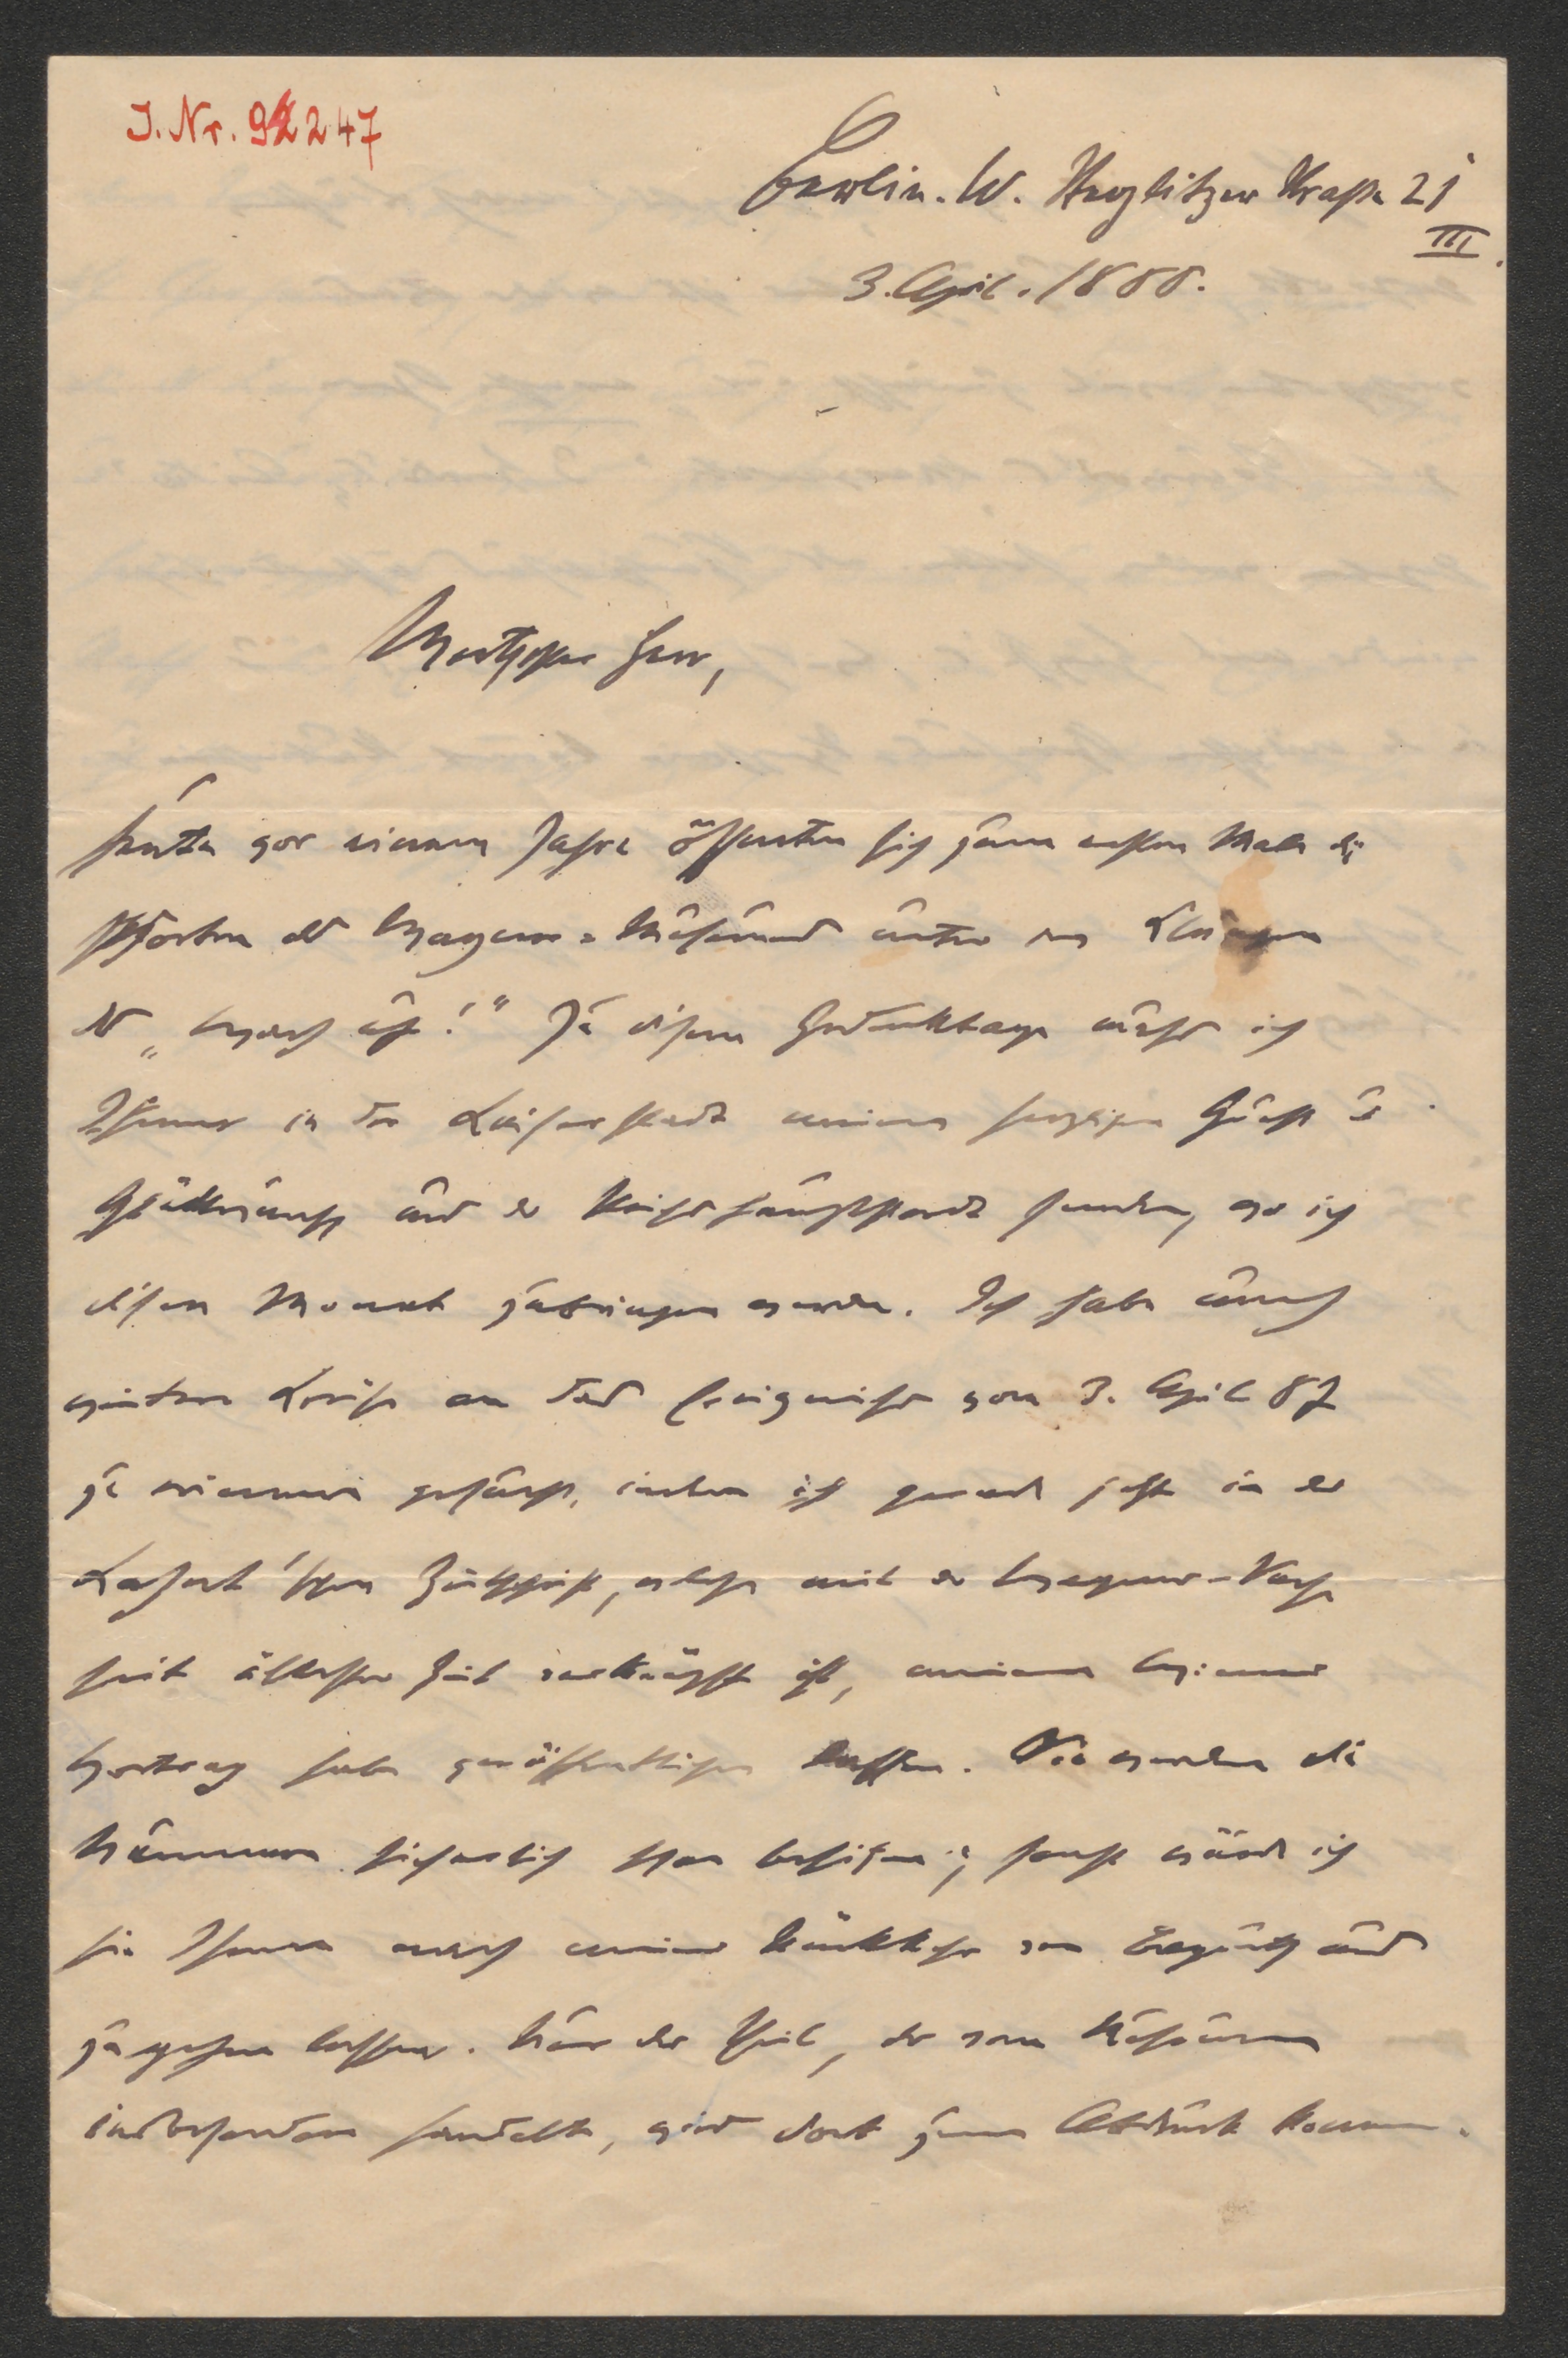 J. Nr. 92247
Berlin. W. Steglitzer Straße 21
III.
3. April. 1888.
Werthester Herr,
heute vor einem Jahre öffneten sich zum ersten Male die
Pforten des Wagner-Museums unter den Klängen
des „Wach auf!“ Zu diesem Gedenktage muß ich
Ihnen in der Kaiserstadt meinen herzlichen Gruß u.
Glückwunsch aus der Reichshauptstadt senden, wo ich
diesen Monat zubringen werde. Ich habe auch
weitere Kreise an das Ereigniss vom 3. April 87
zu erinnern gesucht, indem ich gerade jetzt in der
Zeitschrift, welche mit der Wagner-Sache
seit ältester Zeit verknüpft ist, meinen Wiener
Vortrag habe veröffentlichen lassen. Sie werden die
Nummern sicherlich schon besitzen; sonst würde ich
sie Ihnen nach meiner Rückkehr von Bayreuth aus
zugehen lassen. Nur der Theil, der vom Museum
insbesondere handelte, wird dort zum Abdruck kommen.